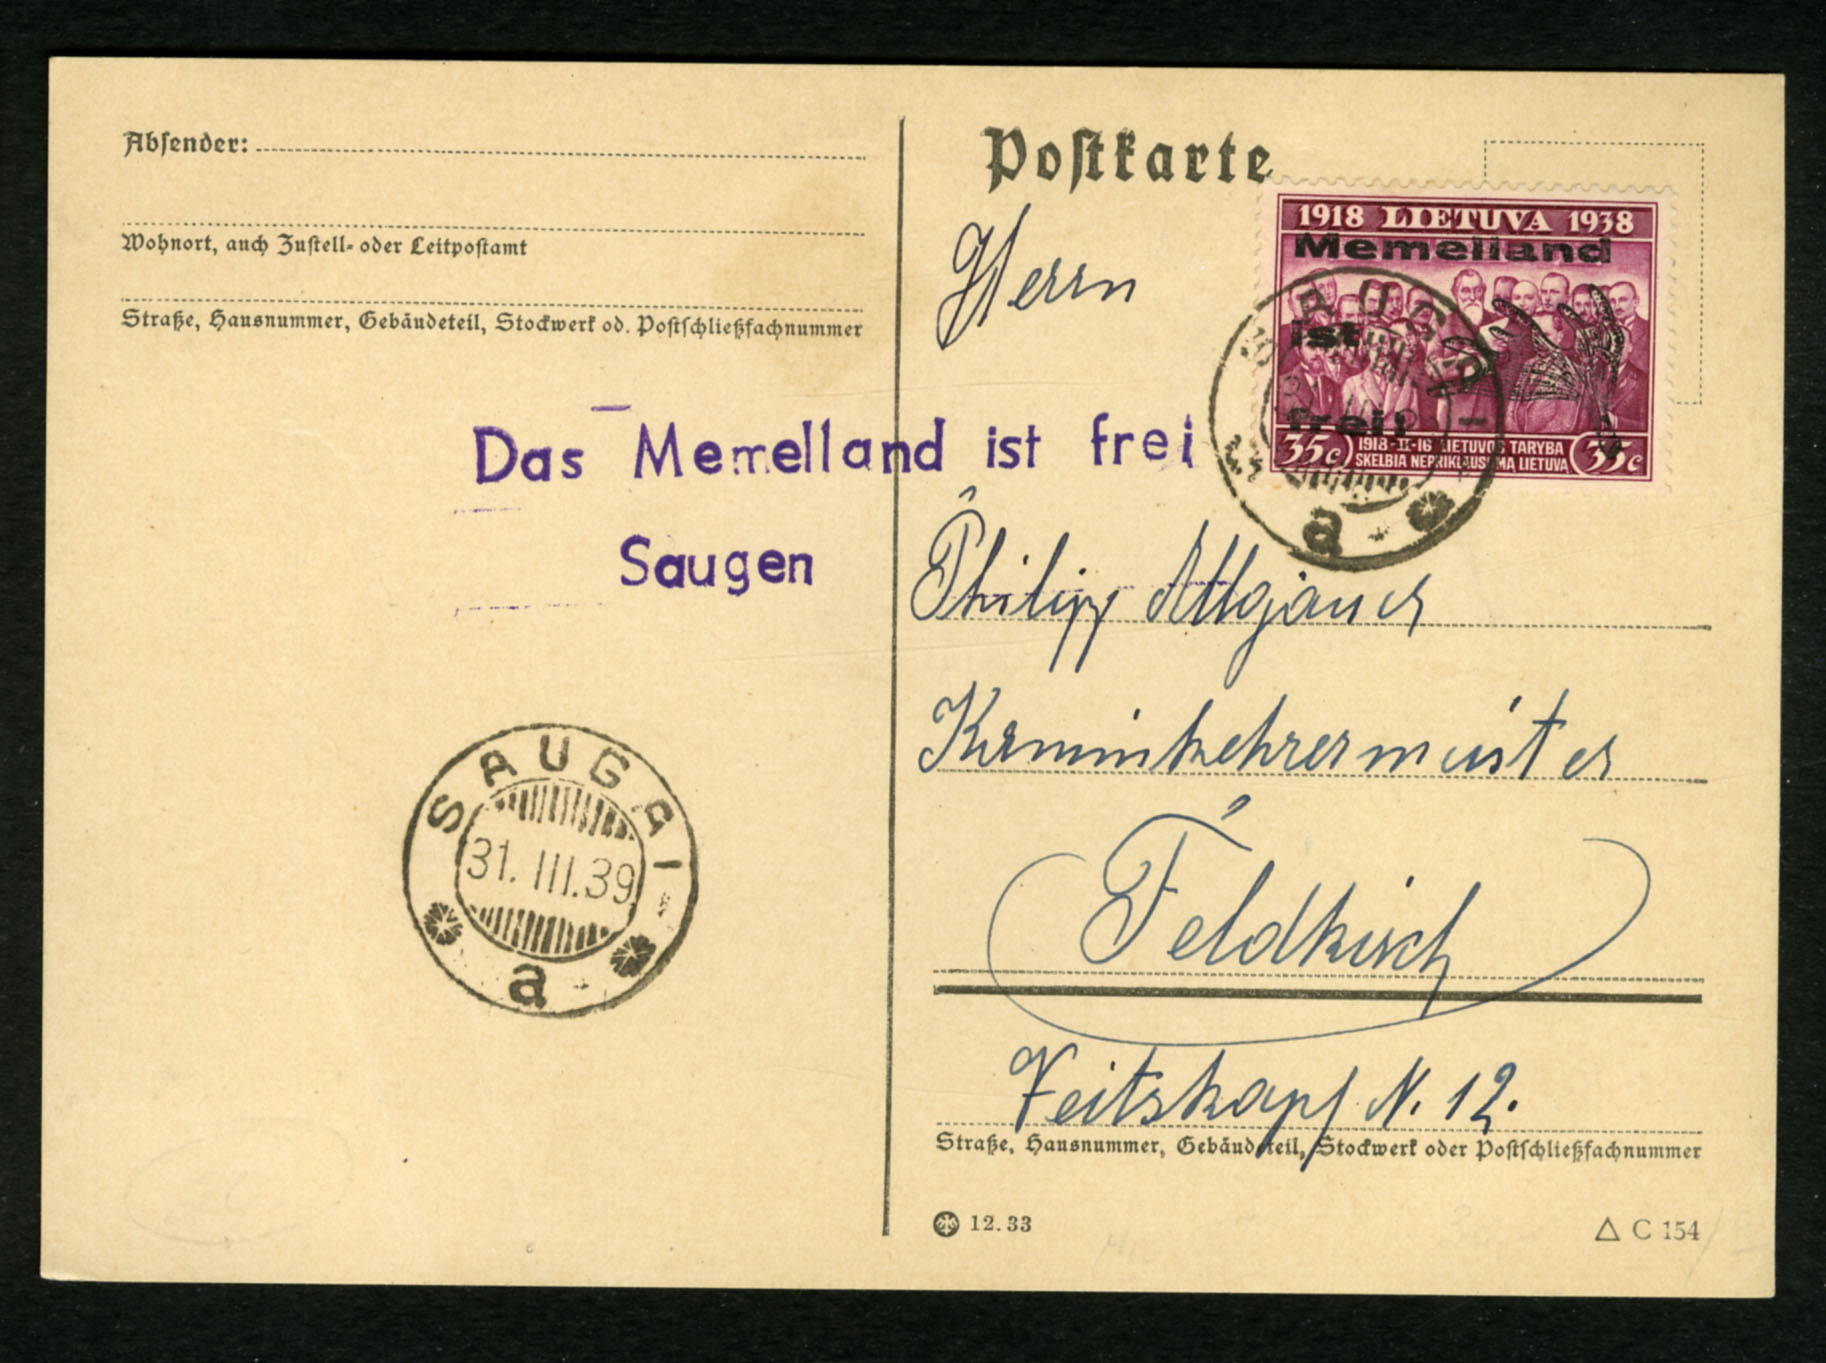 Absender:
Wohnort, auch Zustell- oder Leitpostamt
Straße, Hausnummer, Gebäudeteil, Stockwerk od. Postschließfachnummer
Postkarte
1918 LIETUVA 1938
Memelland
ist
frei!
35c 1918-II-16 LIETUVOS TARYBA
SKELBIA NEPRIKLAUSOMĄ LIETUVĄ 35c
Herrn
Das Memelland ist frei
Saugen
Philipp Allgäuer
Kaminkehrermeister
Feldkirch
Veitskapf N. 12.
Straße, Hausnummer, Gebäudeteil, Stockwerk oder Postschließfachnummer
SAUGAI
31. III. 39
a
a
12.33
C 154